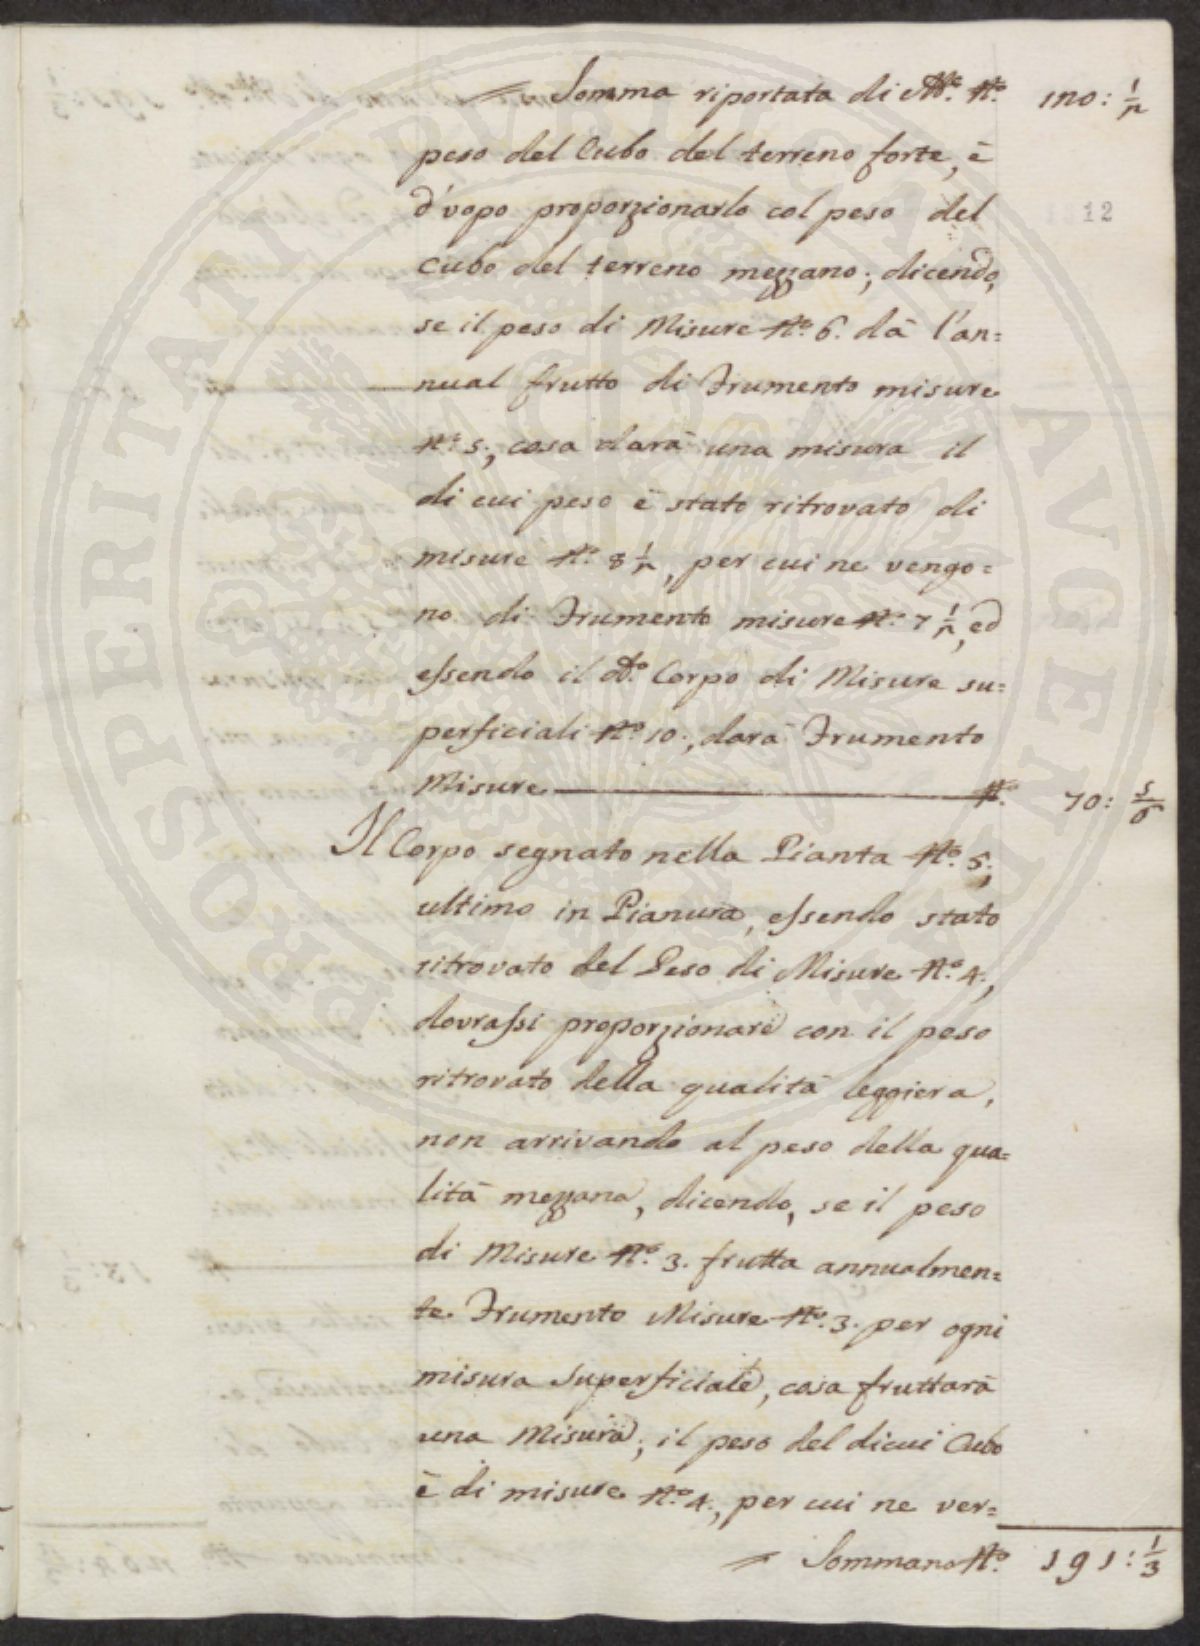 Somma riportata di Mre. No. 120: 1/2
peso del Cubo del terreno forte, è
d'vopo proporzionarlo col peso del
12
Cubo del terreno mezzano; dicendo,
se il peso di Misure No. 6. dà l'an=
nual frutto di Frumento misure
No. 5., cosa darà una misura il
di cui peso è stato ritrovato di
misure No. 8 1/2, per cui ne vengo=
no di Frumento misure No. 7 1/2, ed
essendo il do. Corpo di Misure su=
perficiali No. 10., darà Frumento
Misure No. 70: 5/6
Il Corpo segnato nella Pianta No. 5.,
ultimo in Pianura, essendo stato
ritrovato del Peso di Misure No. 4.,
dovrassi proporzionare con il peso
ritrovato della qualità leggiera,
non arrivando al peso della qua=
lità mezzana, dicendo, se il peso
di Misure No. 3. frutta annualmen=
te Frumento Misure No. 3. per ogni
misura Superficiale, cosa fruttarà
una Misura, il peso del dicui Cubo
è di misure No. 4., per cui ne ver=
Sommano No. 191: 1/3
PROSPERITATI PVBLICAE AVGENDAE